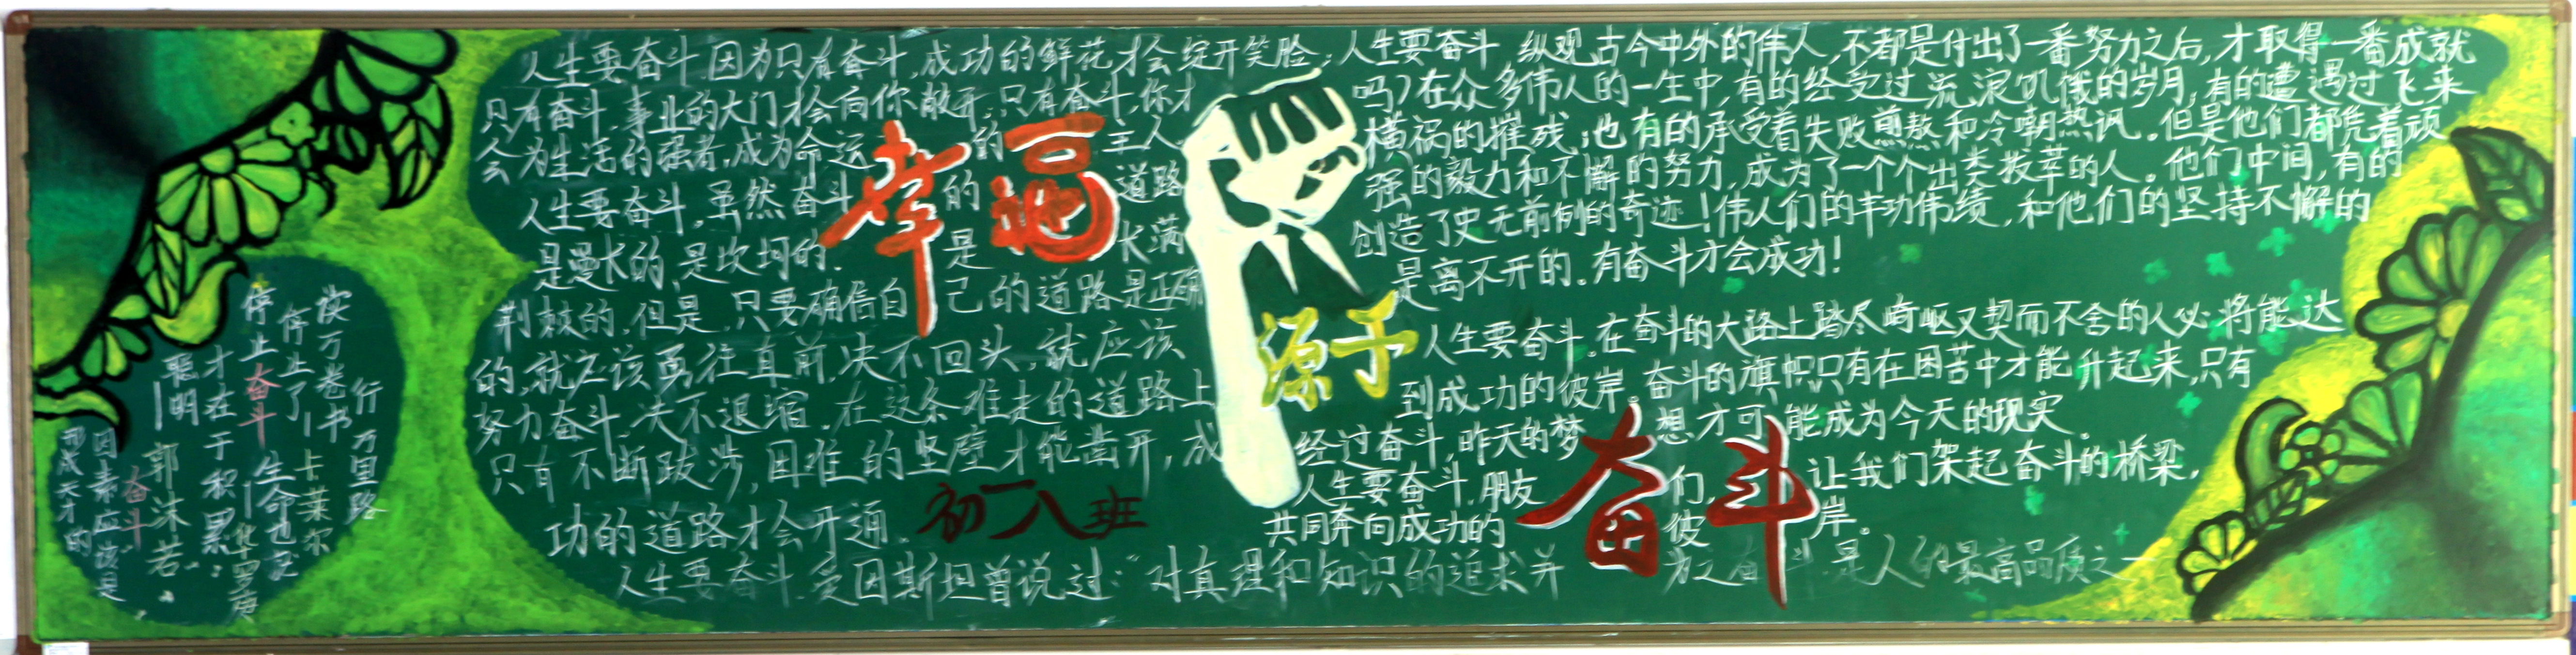 读万卷书 行万里路
停止了——卡莱尔
停止奋斗 生命也就
——华罗庚
聪明
才在于积累
——郭沫若
形成天才的
因素应该是
奋斗
幸福
源于
奋斗
人生要奋斗,因为只有奋斗,成功的鲜花才会绽开笑脸;
只有奋斗,事业的大门才会向你敞开;只有奋斗,你才
会为生活的强者,成为命运的主人
人生要奋斗,虽然奋斗的道路
是漫长的,是坎坷的,是长满
荆棘的,但是,只要确信自己的道路是正确
的,就应该勇往直前,决不回头,就应该
努力奋斗,决不退缩。在这条难走的道路上
只有不断跋涉,困难的坚壁才能凿开,成
功的道路才会开通。
初一八班
人生要奋斗,爱因斯坦曾说过:“对真理和知识的追求并为之奋斗,是人的最高品质之一
人生要奋斗,纵观古今中外的伟人,不都是付出了一番努力之后,才取得一番成就
吗?在众多伟人的一生中,有的经受过流浪饥饿的岁月,有的遭遇过飞来
横祸的摧残,也有的承受着失败煎熬和冷嘲热讽。但是他们都凭着顽
强的毅力和不懈的努力,成为了一个个出类拔萃的人。他们中间,有的
创造了史无前例的奇迹!伟人们的丰功伟绩,和他们的坚持不懈的
是离不开的。有奋斗才会成功!
人生要奋斗。在奋斗的大路上踏尽崎岖又契而不舍的人必将能达
到成功的彼岸。奋斗的旗帜只有在困苦中才能升起来,只有
经过奋斗,昨天的梦想才可能成为今天的现实。
人生要奋斗,朋友们,让我们架起奋斗的桥梁,
共同奔向成功的彼岸。